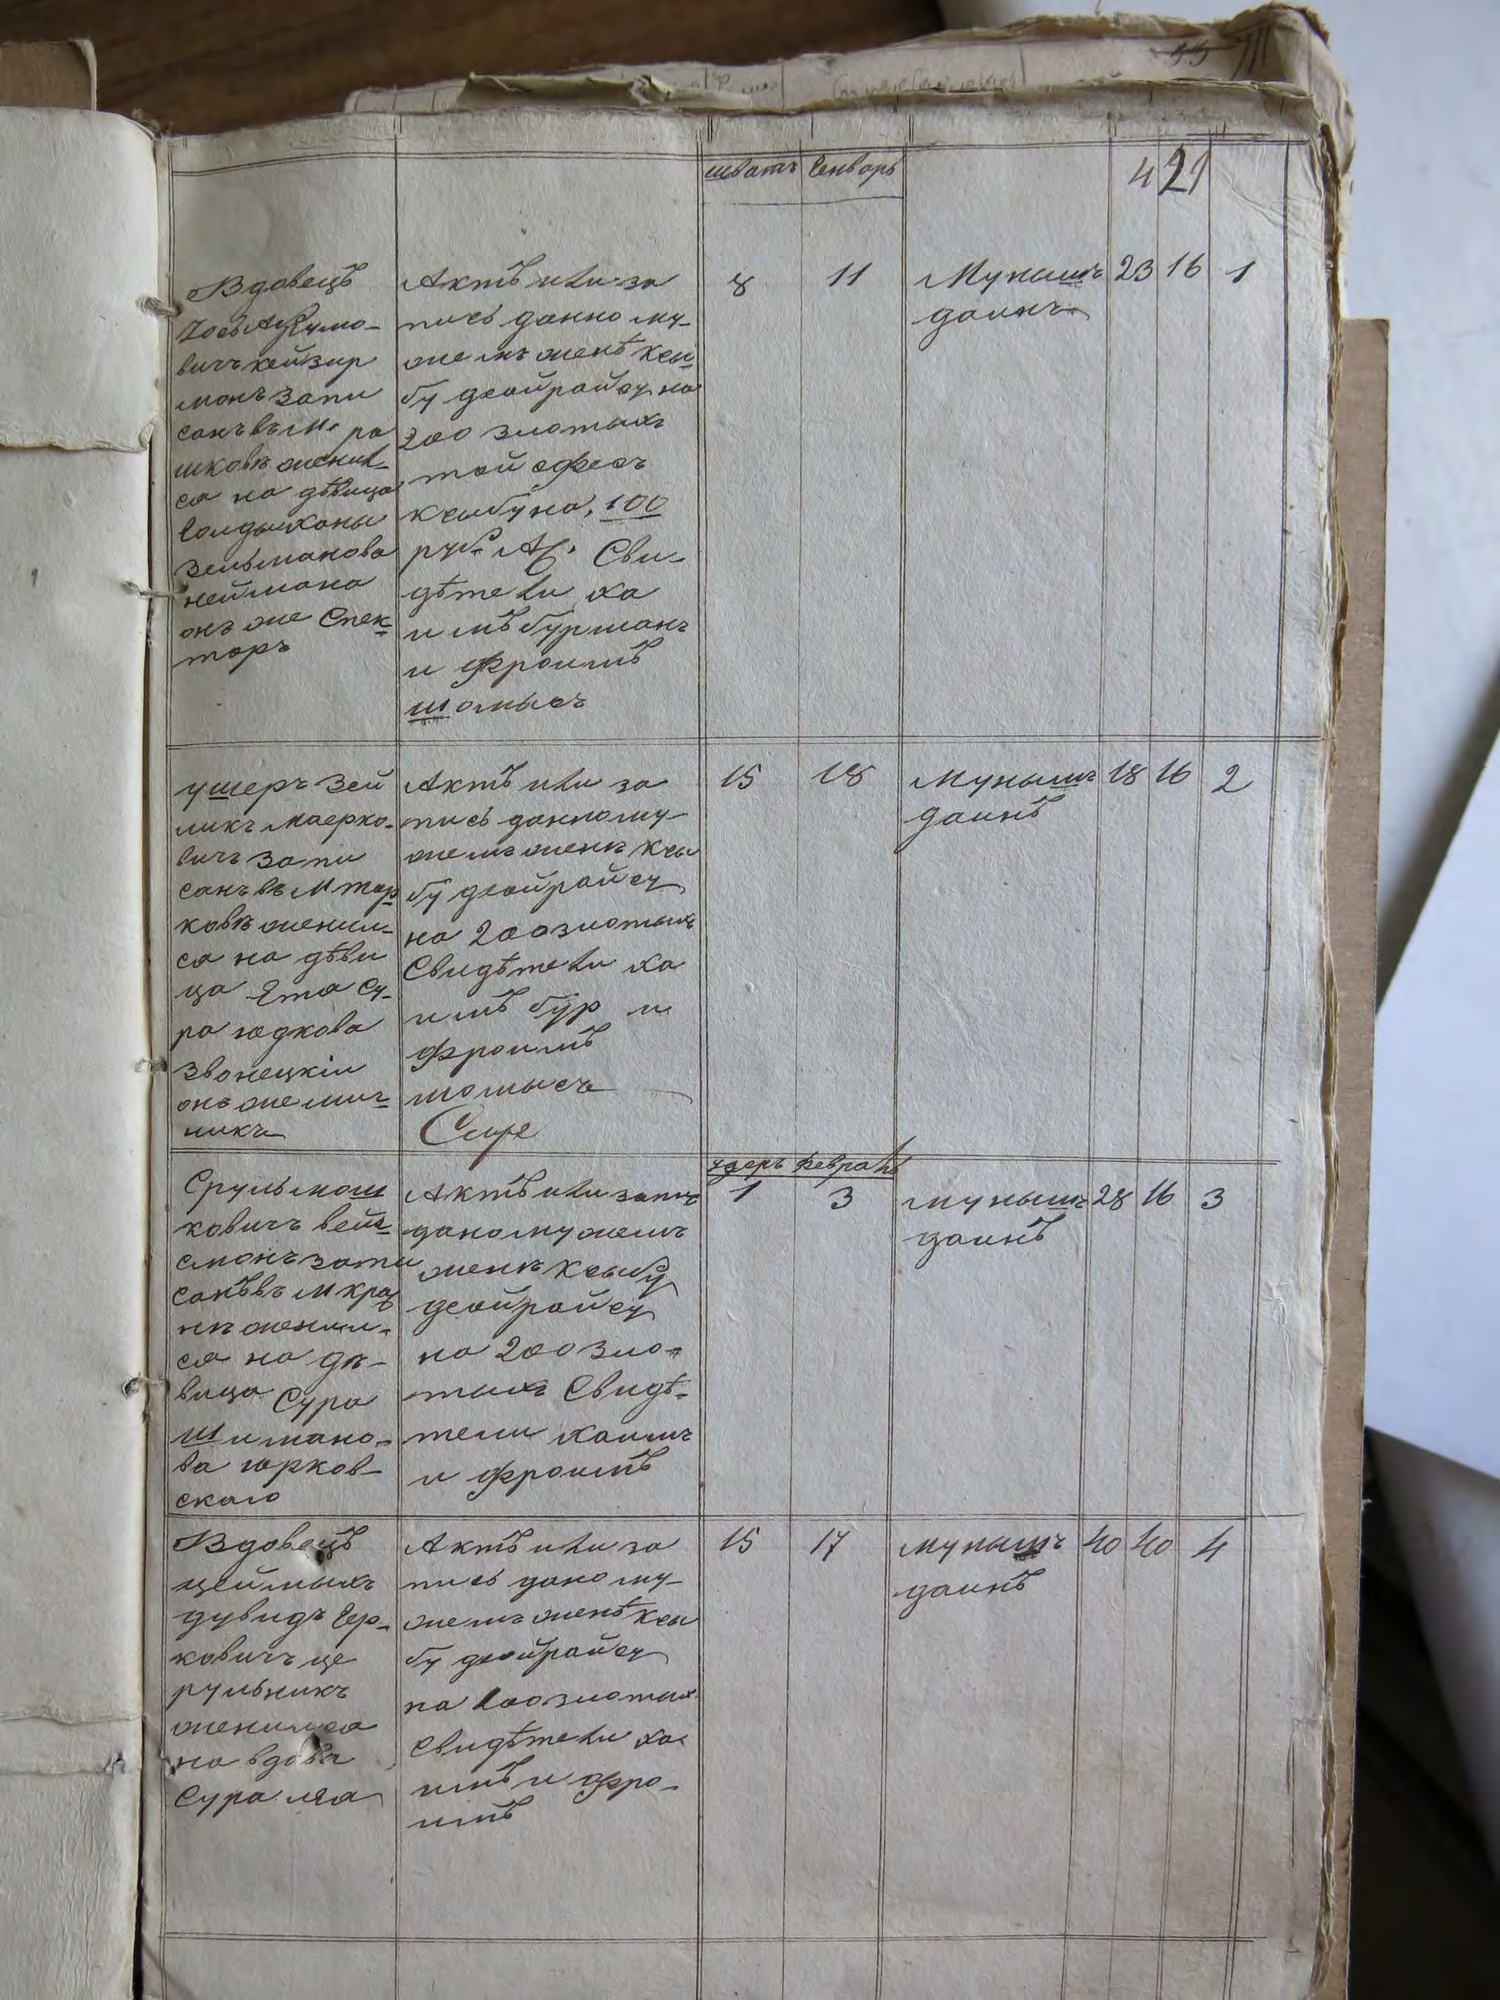 шватъ Генварь
4 21
Вдовецъ
вичъ кейзер
манъ запи
санъ въ м. ра
шковѣ женил-
ся на дѣвица
Голды ханы
Зельманова
неймана
онъ же Спек-
торъ
Актъ или за
пись данно му-
жемъ женѣ ксы-
бу деойрайсу на
200 злотыхъ
той сфесъ
ксыбу на, 100
руб. Ас. Сви-
дѣтели ха
имъ бурманъ
и Фроимъ
шомысъ
8
11
Мунышъ
даинъ
23 16 1
ушеръ зей
ликъ маерко-
вичъ запи
санъ въ м тор
ковѣ женил-
ся на дѣви
ца Ета Су-
ра юдкова
Звонецкій
онъ же миг-
никъ
Актъ или за
пись данно му-
жемъ женѣ ксы
бу деойрайсу
на 200 злотыхъ
Свидѣтели ха
имъ бур и
Фроимъ
шомысъ
15
18
Мунышъ
даинъ
18 16 2
удеръ февраль
Сруль мош
ковичъ вей
сманъ запи
санъ въ м кра
нѣ женил-
ся на дѣ-
вица Сура
шимано-
ва юрков-
скаго
Актъ или запись
дано мужемъ
женѣ ксыбу
деойрайсу
на 200 зло-
тыхъ Свидѣ-
тели хаимъ
и Фроимъ
1
3
мунышъ
даинъ
28 16 3
Вдовецъ
цеймыхъ
дувидъ Гер-
ковичъ це
рульникъ
женился
на вдова
Сура лея
Актъ или за
пись дано му-
жемъ женѣ ксы
бу деойрайсу
на 100 злотых
свидѣтели ха
имъ и Фро-
имъ
15
17
мунышъ
даинъ
40 40 4